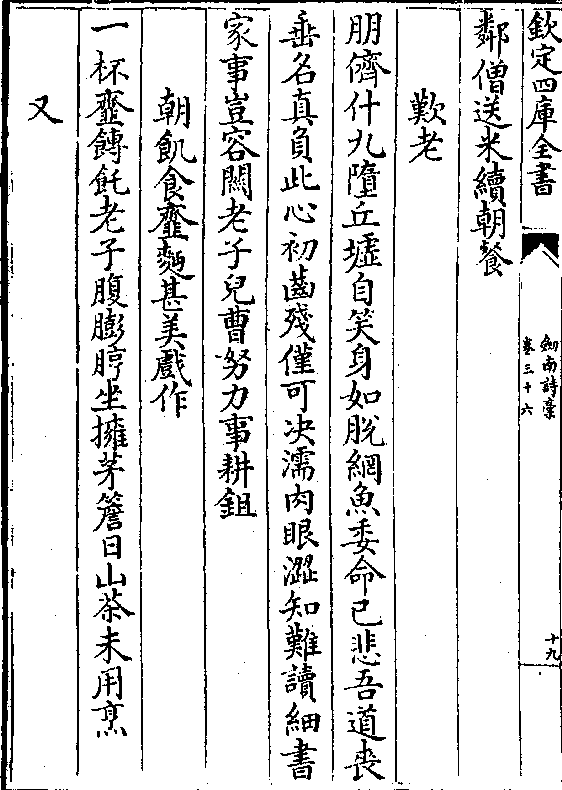 欽定四庫全書
劍南詩藁
卷三十六
十九
鄰僧送米續朝餐
歎老
朋儕什九墮丘墟自笑身如脫網魚委命已悲吾道喪
垂名真負此心初齒殘僅可决濡肉眼澀知難讀細書
家事豈容關老子兒曹努力事耕鉏
朝飢食齏麪甚美戲作
一杯齏餺飥老子腹膨脝坐擁茅簷日山茶未用烹
又